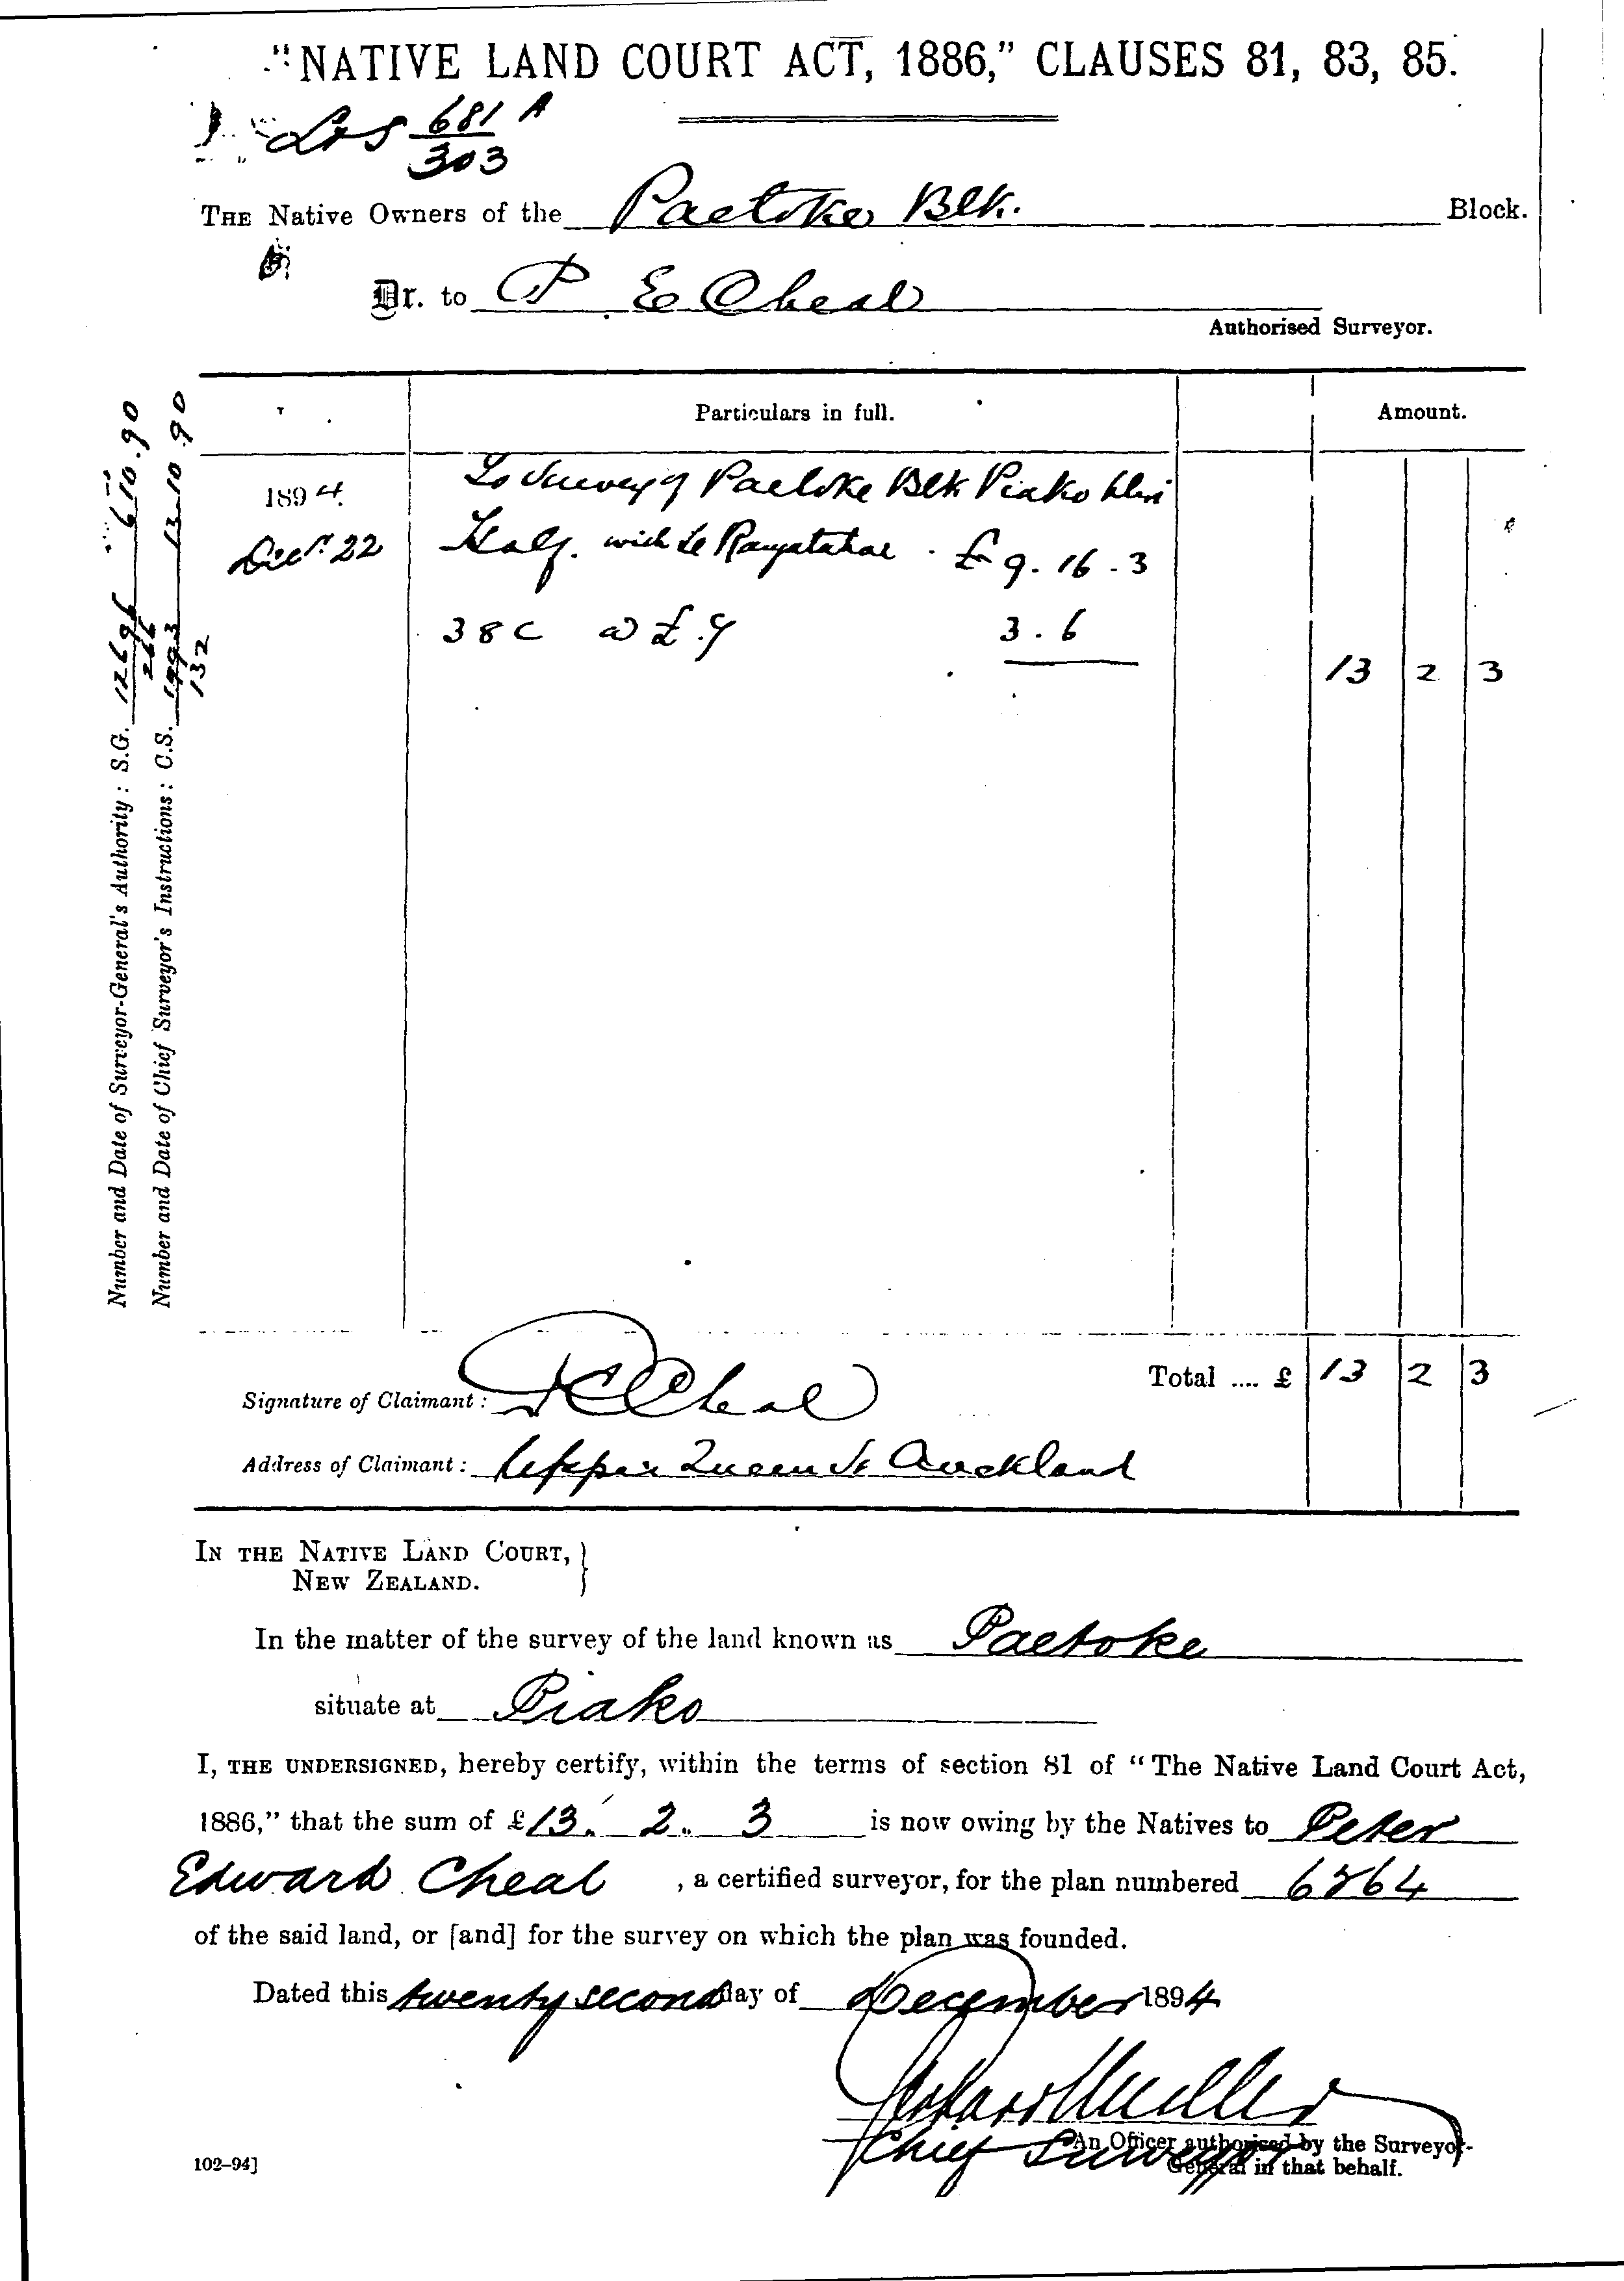 "NATIVE LAND COURT ACT, 1886," CLAUSES 81, 83, 85.
681 A
303
THE Native Owners of the Paetoke Blk. Block.
Dr. to P E Cheal
Authorised Surveyor.
Particulars in full. Amount.
1894. To Survey of Paetoke Blk Piako
Decr. 22 Half. with Te Rangatahae . £ 9. 16 . 3
38 C @ £ . 3 . 6
13 2 3
Number and Date of Surveyor-General's Authority : S.G. 12696 6 10 . 90
266
Number and Date of Chief Surveyor's Instructions : C.S. 1993 13 10 90
132
Total .... £ 13 2 3
Signature of Claimant : P E Cheal
Address of Claimant : Upper Queen St Auckland
IN THE NATIVE LAND COURT,
NEW ZEALAND.
In the matter of the survey of the land known as Paetoke
situate at Piako
I, THE UNDERSIGNED, hereby certify, within the terms of section 81 of "The Native Land Court Act,
1886," that the sum of £13. 2. 3 is now owing by the Natives to Peter
Edward Cheal , a certified surveyor, for the plan numbered 6264
of the said land, or [and] for the survey on which the plan was founded.
Dated this twenty second day of December 1894
Mueller
Chief Surveyor
An Officer authorised by the Surveyor-
General in that behalf.
102–94]